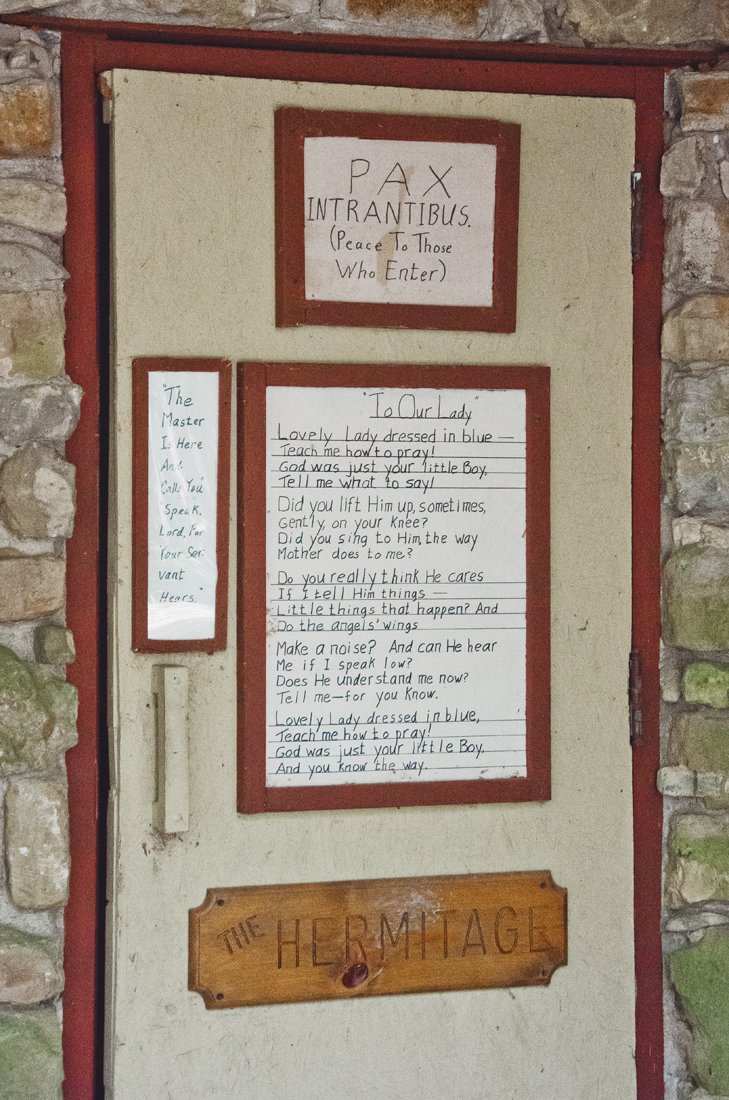 PAX
INTRANTIBUS.
(Peace To Those
Who Enter)
"The
Master
Is Here
And
Calls You"
"Speak,
Lord, For
Your Ser-
vant
Hears."
"To Our Lady"
Lovely Lady dressed in blue —
Teach me how to pray!
God was just your little Boy,
Tell me what to say!
Did you lift Him up, sometimes,
Gently, on your knee?
Did you sing to Him, the way
Mother does to me?
Do you really think He cares
If I tell Him things —
Little things that happen? And
Do the angels' wings
Make a noise? And can He hear
Me if I speak low?
Does He understand me now?
Tell me—for you know.
Lovely Lady dressed in blue,
Teach me how to pray!
God was just your little Boy,
And you know the way.
THE HERMITAGE